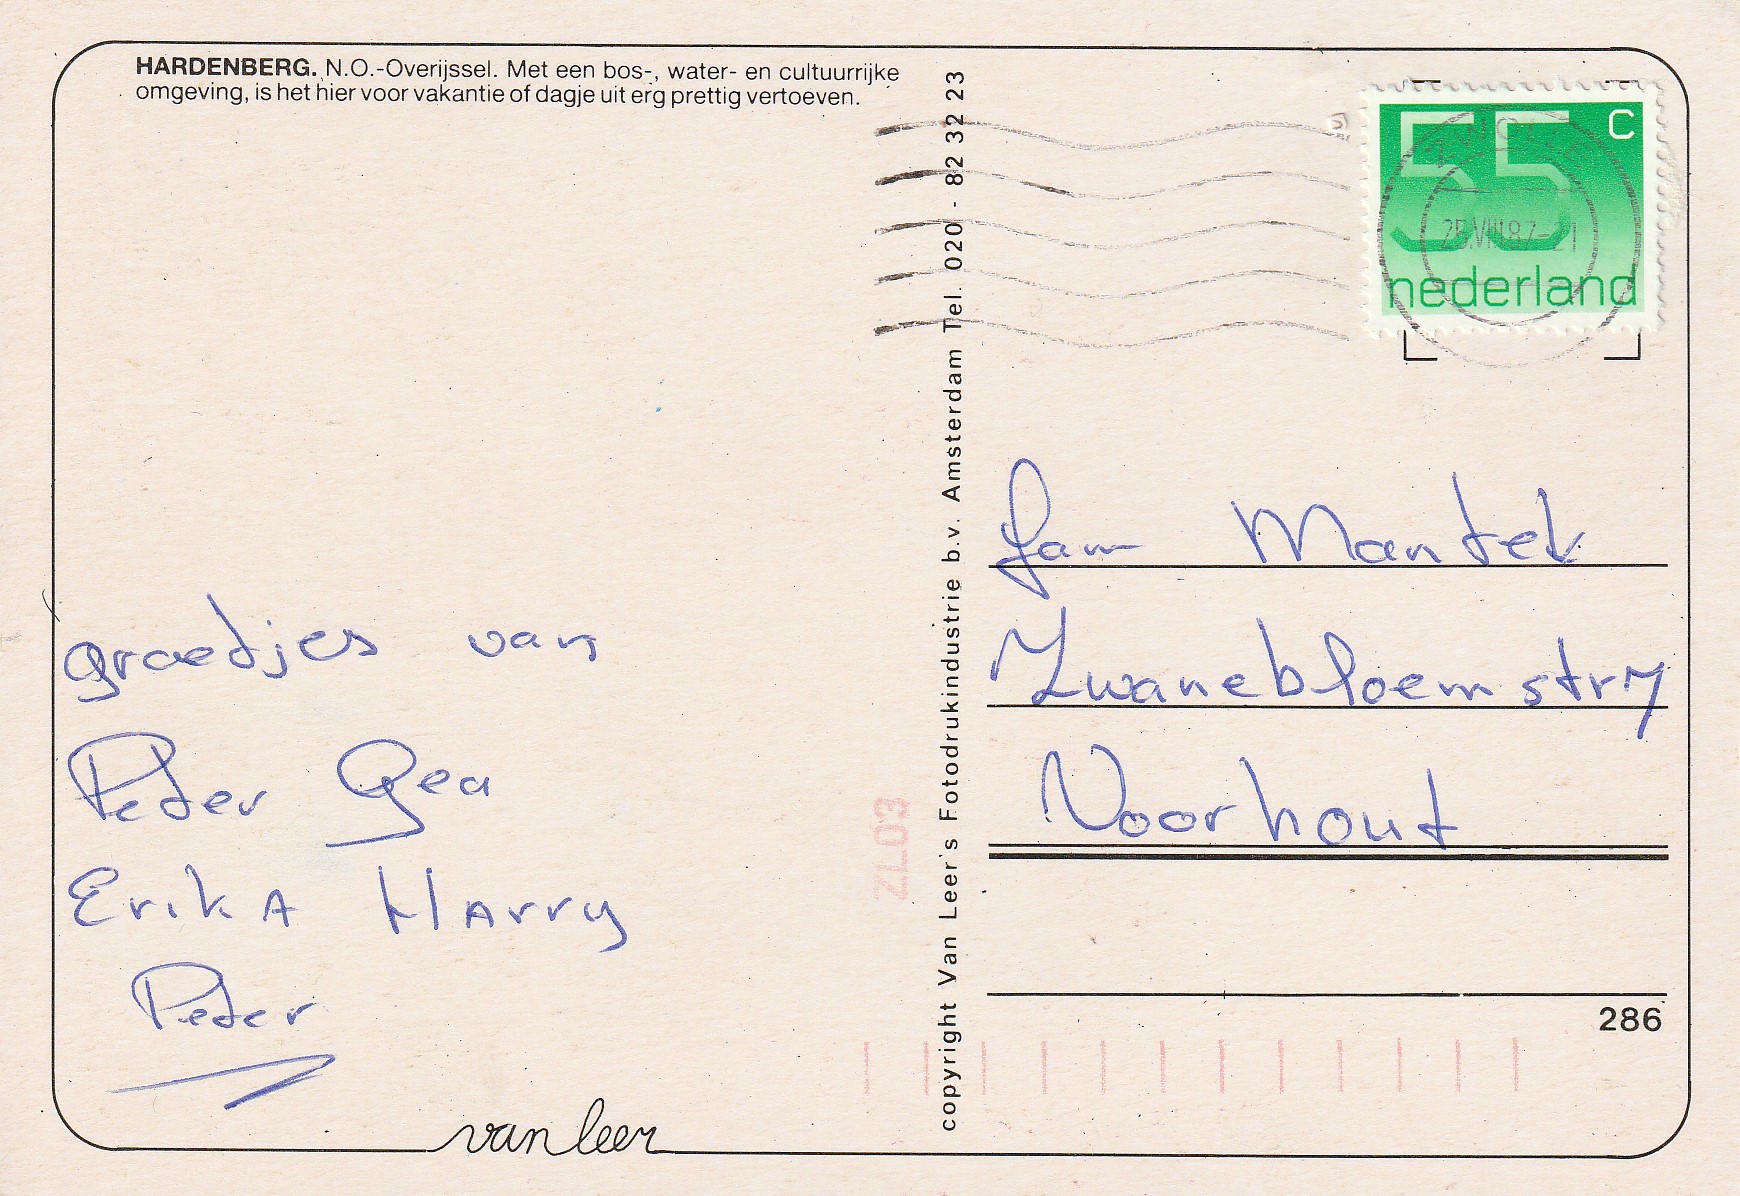 HARDENBERG. N.O.-Overijssel. Met een bos-, water- en cultuurrijke
omgeving, is het hier voor vakantie of dagje uit erg prettig vertoeven.
groetjes van
Peter Gea
Erika Harry
Peter
van leer
copyright Van Leer's Fotodrukindustrie b.v. Amsterdam Tel. 020 - 82 32 23
ZL03
55 C
nederland
25.VIII.87-21
fam Mantel
Zwanebloemstr 7
Voorhout
286